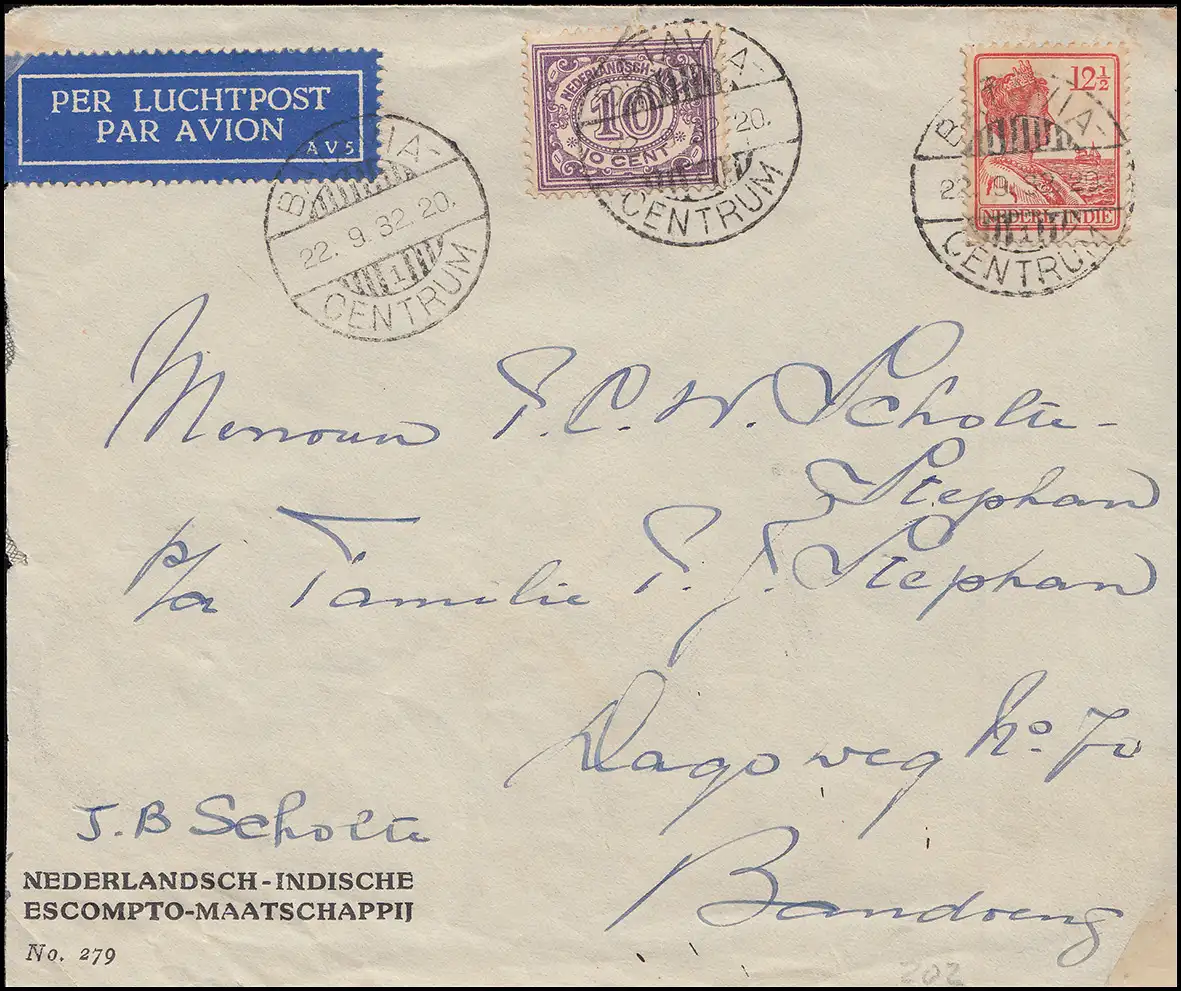 PER LUCHTPOST
PAR AVION
AV5
BATAVIA-
22. 9. 32 20.
1
CENTRUM
NEDERLANDSCH-
10
10 CENT
BATAVIA-
20.
1
CENTRUM
12½
NEDERL-INDIE
BATAVIA-
22. 9. 32 20.
1
CENTRUM
Mevrouw F. C. W. Scholte-
Stephan
p/a Familie F. J. Stephan
Dagoweg No. 70
Bandoeng
J.B Scholte
NEDERLANDSCH-INDISCHE
ESCOMPTO-MAATSCHAPPIJ
No. 279
202